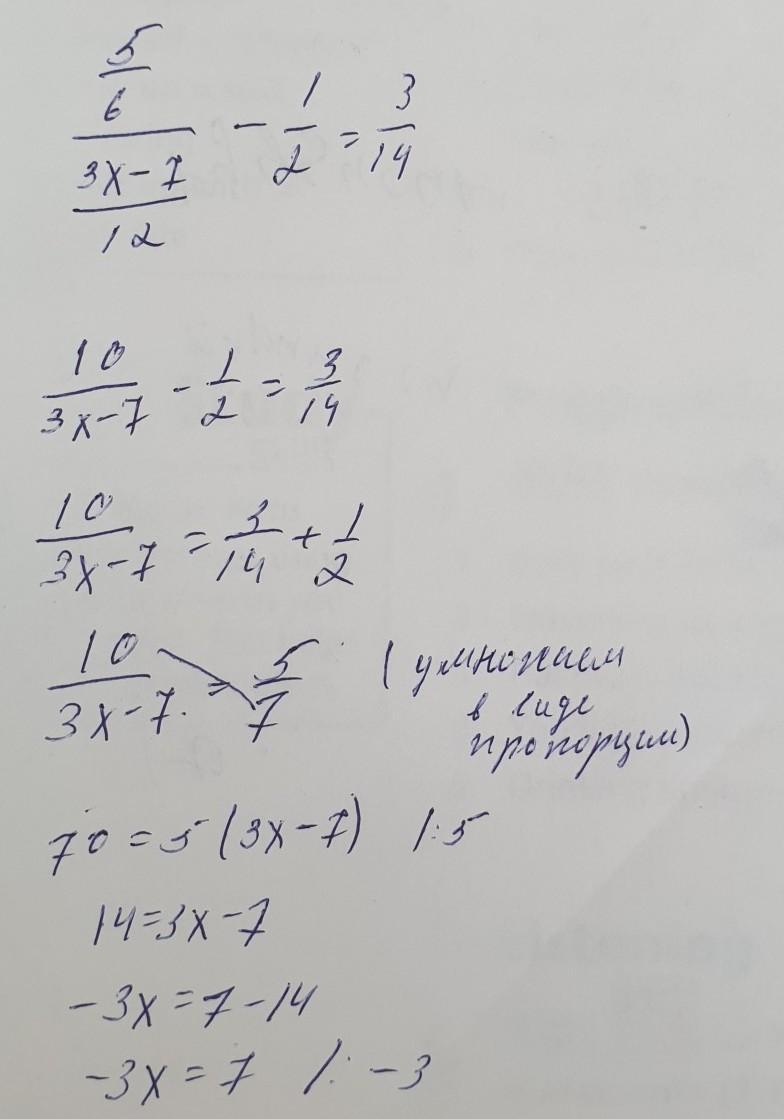 5/6 / (3x-7)/12 - 1/2 = 3/14
10/(3x-7) - 1/2 = 3/14
10/(3x-7) = 3/14 + 1/2
10/(3x-7) = 5/7 (умножаем
в виде
пропорции)
70 = 5(3x-7) /:5
14=3x-7
-3x=7-14
-3x=7 /: -3